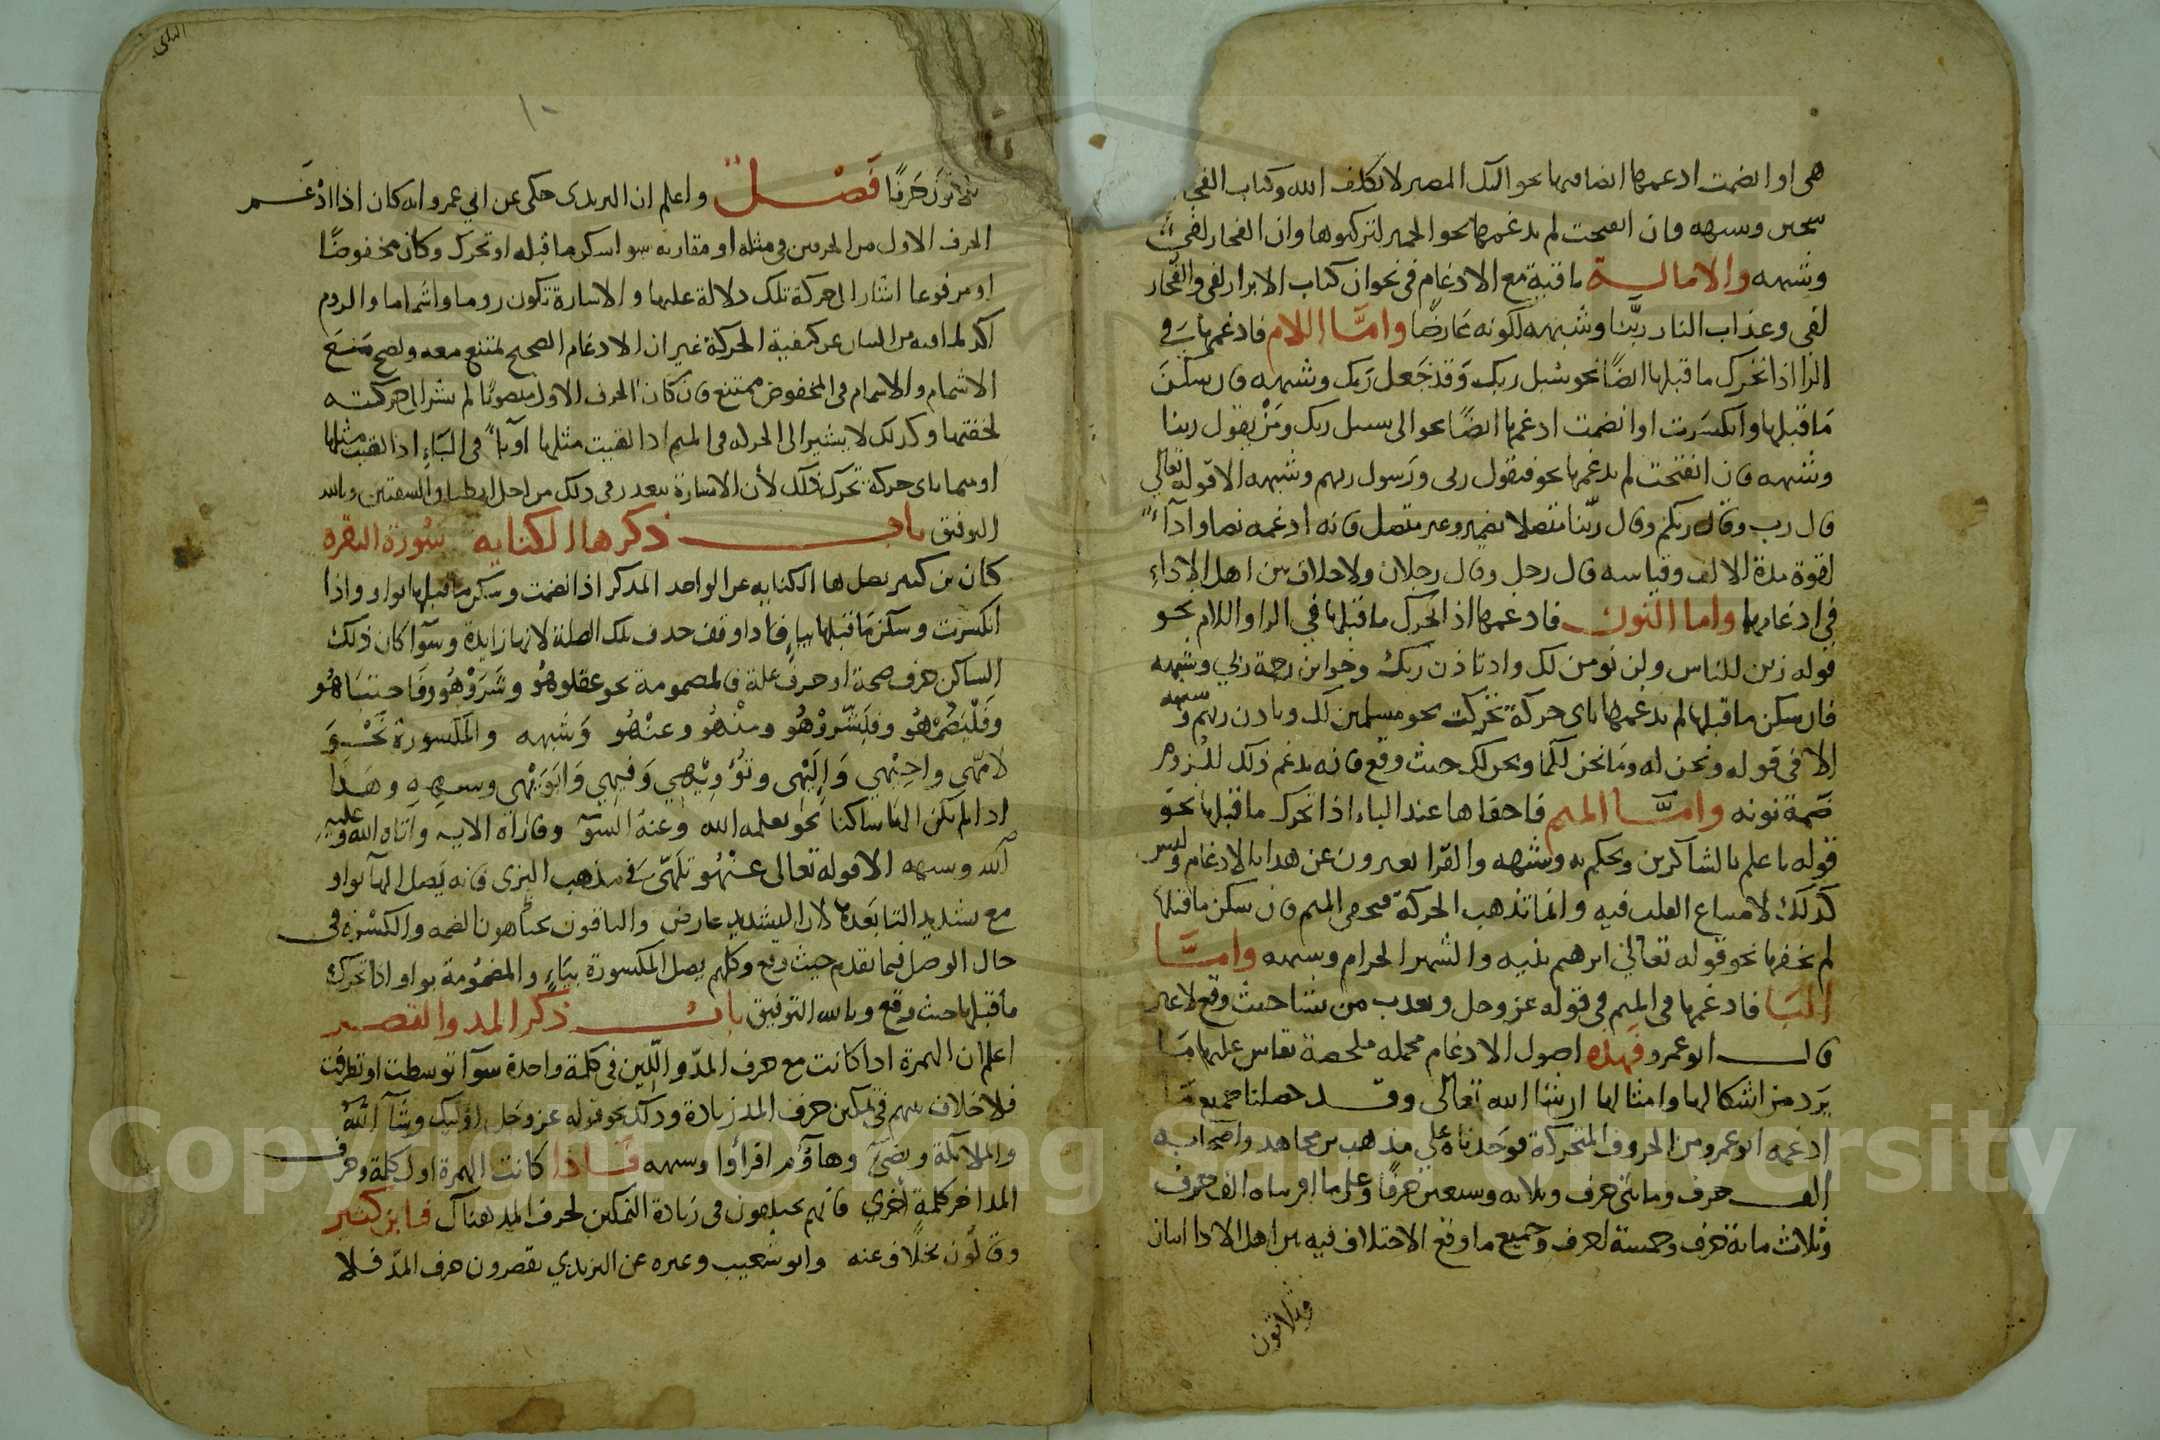 هي او انضمت ادغمها ايضا فيها نحو اليك المصير لا يكلف الله وكتاب الفجار
سجين وشبهه فان انفتحت لم يدغمها نحو الحمير لتركبوها وان الفجار لفي
وشبهه والامالة باقية مع الادغام في نحو ان كتاب الابرار لفي والفجار
لفي وعذاب النار ربنا وشبهه لكونه عارضا واما اللام فادغمها في
الرا اذا تحرك ما قبلها ايضا نحو سبل ربك وقد جعل ربك وشبهه فان سكن
ما قبلها وانكسرت او انضمت ادغمها ايضا نحو الى سبيل ربك ومن يقول ربنا
وشبهه فان انفتحت لم يدغمها نحو فيقول ربي ورسول ربهم وشبهه الا قوله تعالى
قال رب وقال ربكم وقال ربنا متصلا بضمير وغير متصل فانه ادغمه نصا واداء
لقوة مدة الالف وقياسه قال رجل وقال رجلان ولا خلاف بين اهل الاداء
في ادغامها واما النون فادغمها اذا تحرك ما قبلها في الرا واللام نحو
قوله زين للناس ولن نومن لك واذ تاذن ربك وخزاين رحمة ربي وشبهه
فان سكن ما قبلها لم يدغمها باي حركة تحركت نحو مسلمين لك وباذن ربهم وشبهه
الا في قوله ونحن له وما نحن لكما ونحن لك حيث وقع فانه يدغم ذلك للزوم
ضمة نونه واما الميم فاخفاها عند الباء اذا تحرك ما قبلها نحو
قوله باعلم بالشاكرين ويحكم به وشبهه والقرا يعبرون عن هذا بالادغام وليس
كذلك لامتناع القلب فيه وانما تذهب الحركة فتخفى الميم فان سكن ما قبلها
لم يخفها نحو قوله تعالى ابرهيم بنيه والشهر الحرام وشبهه واما
البا فادغمها في الميم في قوله عز وجل ويعذب من يشا حيث وقع لا غير
قال ابو عمرو فهذه اصول الادغام مجملة ملخصة يقاس عليها ما
يرد من اشكالها وامثالها ان شا الله تعالى وقد حصلنا جميع ما
ادغمه ابو عمرو من الحروف المتحركة فوجدناه على مذهب بن مجاهد واصحابه
الف حرف ومائتي حرف وثلاثه وسبعين حرفا وعلى ما اقريناه الف حرف
وثلاث مائة حرف وخمسة احرف وجميع ما وقع الاختلاف فيه بين اهل الادا اثنان
وثلاثون
١٠
ثلاثون حرفا فصل واعلم ان اليزيدي حكى عن ابي عمرو انه كان اذا ادغم
الحرف الاول من الحرفين في مثله او مقاربه سوا سكن ما قبله او تحرك وكان مخفوضا
او مرفوعا اشار الى حركة تلك دلالة عليها والاشارة تكون روما واشماما والروم
اكد لما فيه من البيان عن كيفية الحركة غير ان الادغام الصحيح يمتنع معه ويصح مع
الاشمام والاشمام في المخفوض ممتنع فان كان الحرف الاول منصوبا لم يشر الى حركته
لخفتها وكذلك لا يشير الى الحركة في الميم اذا لقيت مثلها او با وفي الباء اذا لقيت مثلها
او ميما باي حركة تحرك ذلك لأن الاشارة تتعذر في ذلك من اجل انطباق الشفتين وبالله
التوفيق باب ذكر ها الكنايه سورة البقره
كان بن كثير يصل ها الكنايه عن الواحد المذكر اذا انضمت وسكن ما قبلها بواو واذا
انكسرت وسكن ما قبلها بياء فاذا وقف حذف تلك الصلة لانها زايدة وسوا كان ذلك
الساكن حرف صحة او حرف علة فالمضمومة نحو عقلوهو وشروهو وفاجتباهو
وفليصمهو وفبشروهو ومنهو وعنهو وشبهه والمكسورة نحو
لابيهي واخيهي واليهي ونؤديهي وفيهي وابويهي وشبهه وهذا
اذا لم يكن الها ساكنا نحو يعلمه الله وعنه السو وفاراه الايه واتاه الله وعليه
الله وشبهه الا قوله تعالى عنهو تلهى في مذهب البزي فانه يصل الها بواو
مع تشديد التا بعدها لان التشديد عارض والباقون يختلسون الضمه والكسره في
حال الوصل فيما تقدم حيث وقع وكلهم يصل المكسورة بياء والمضمومة بواو اذا تحرك
ما قبلها حيث وقع وبالله التوفيق باب ذكر المد والقصر
اعلم ان الهمزة اذا كانت مع حرف المد واللين في كلمة واحدة سوا توسطت او تطرفت
فلا خلاف بينهم في تمكين حرف المد زيادة وذلك نحو قوله عز وجل اوليك وشآ الله
والملائكة ويضئ وهآؤم اقرأوا وشبهه فاذا كانت الهمزة اول كلمة وحرف
المد اخر كلمة أخرى فانهم يختلفون في زيادة التمكين لحرف المد هناك فابن كثير
وقالون بخلاف عنه وابو شعيب وغيره عن اليزيدي يقصرون حرف المد فلا
Copyright © King Saud University